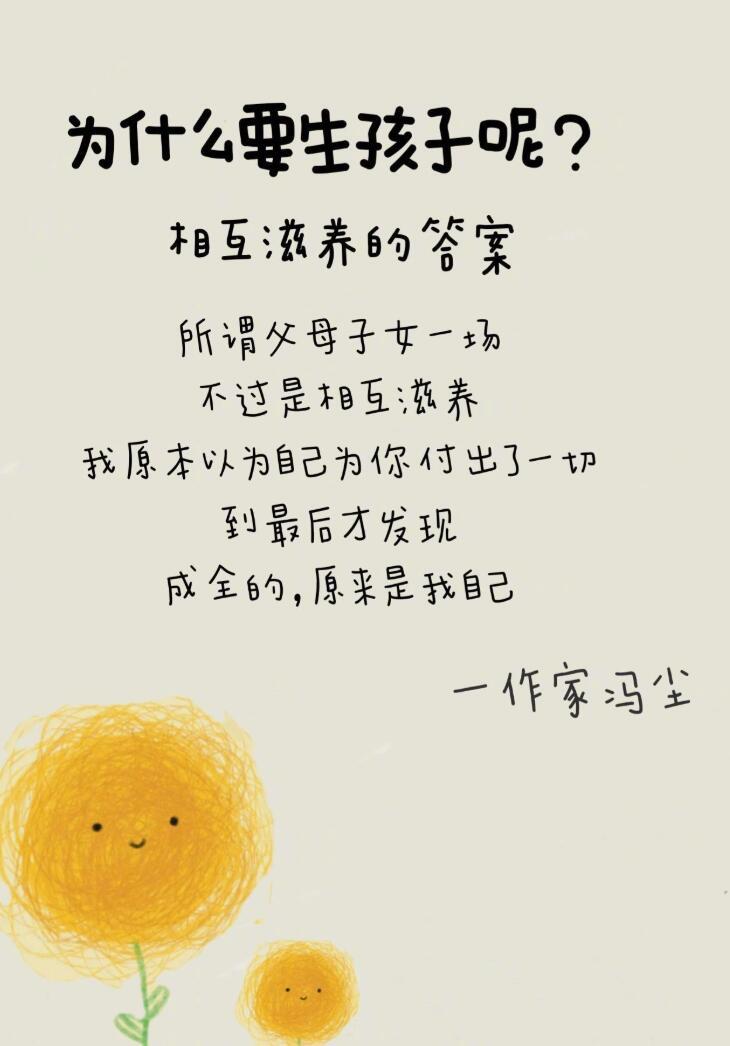 为什么要生孩子呢?
相互滋养的答案
所谓父母子女一场
不过是相互滋养
我原本以为自己为你付出了一切
到最后才发现
成全的,原来是我自己
一作家冯尘